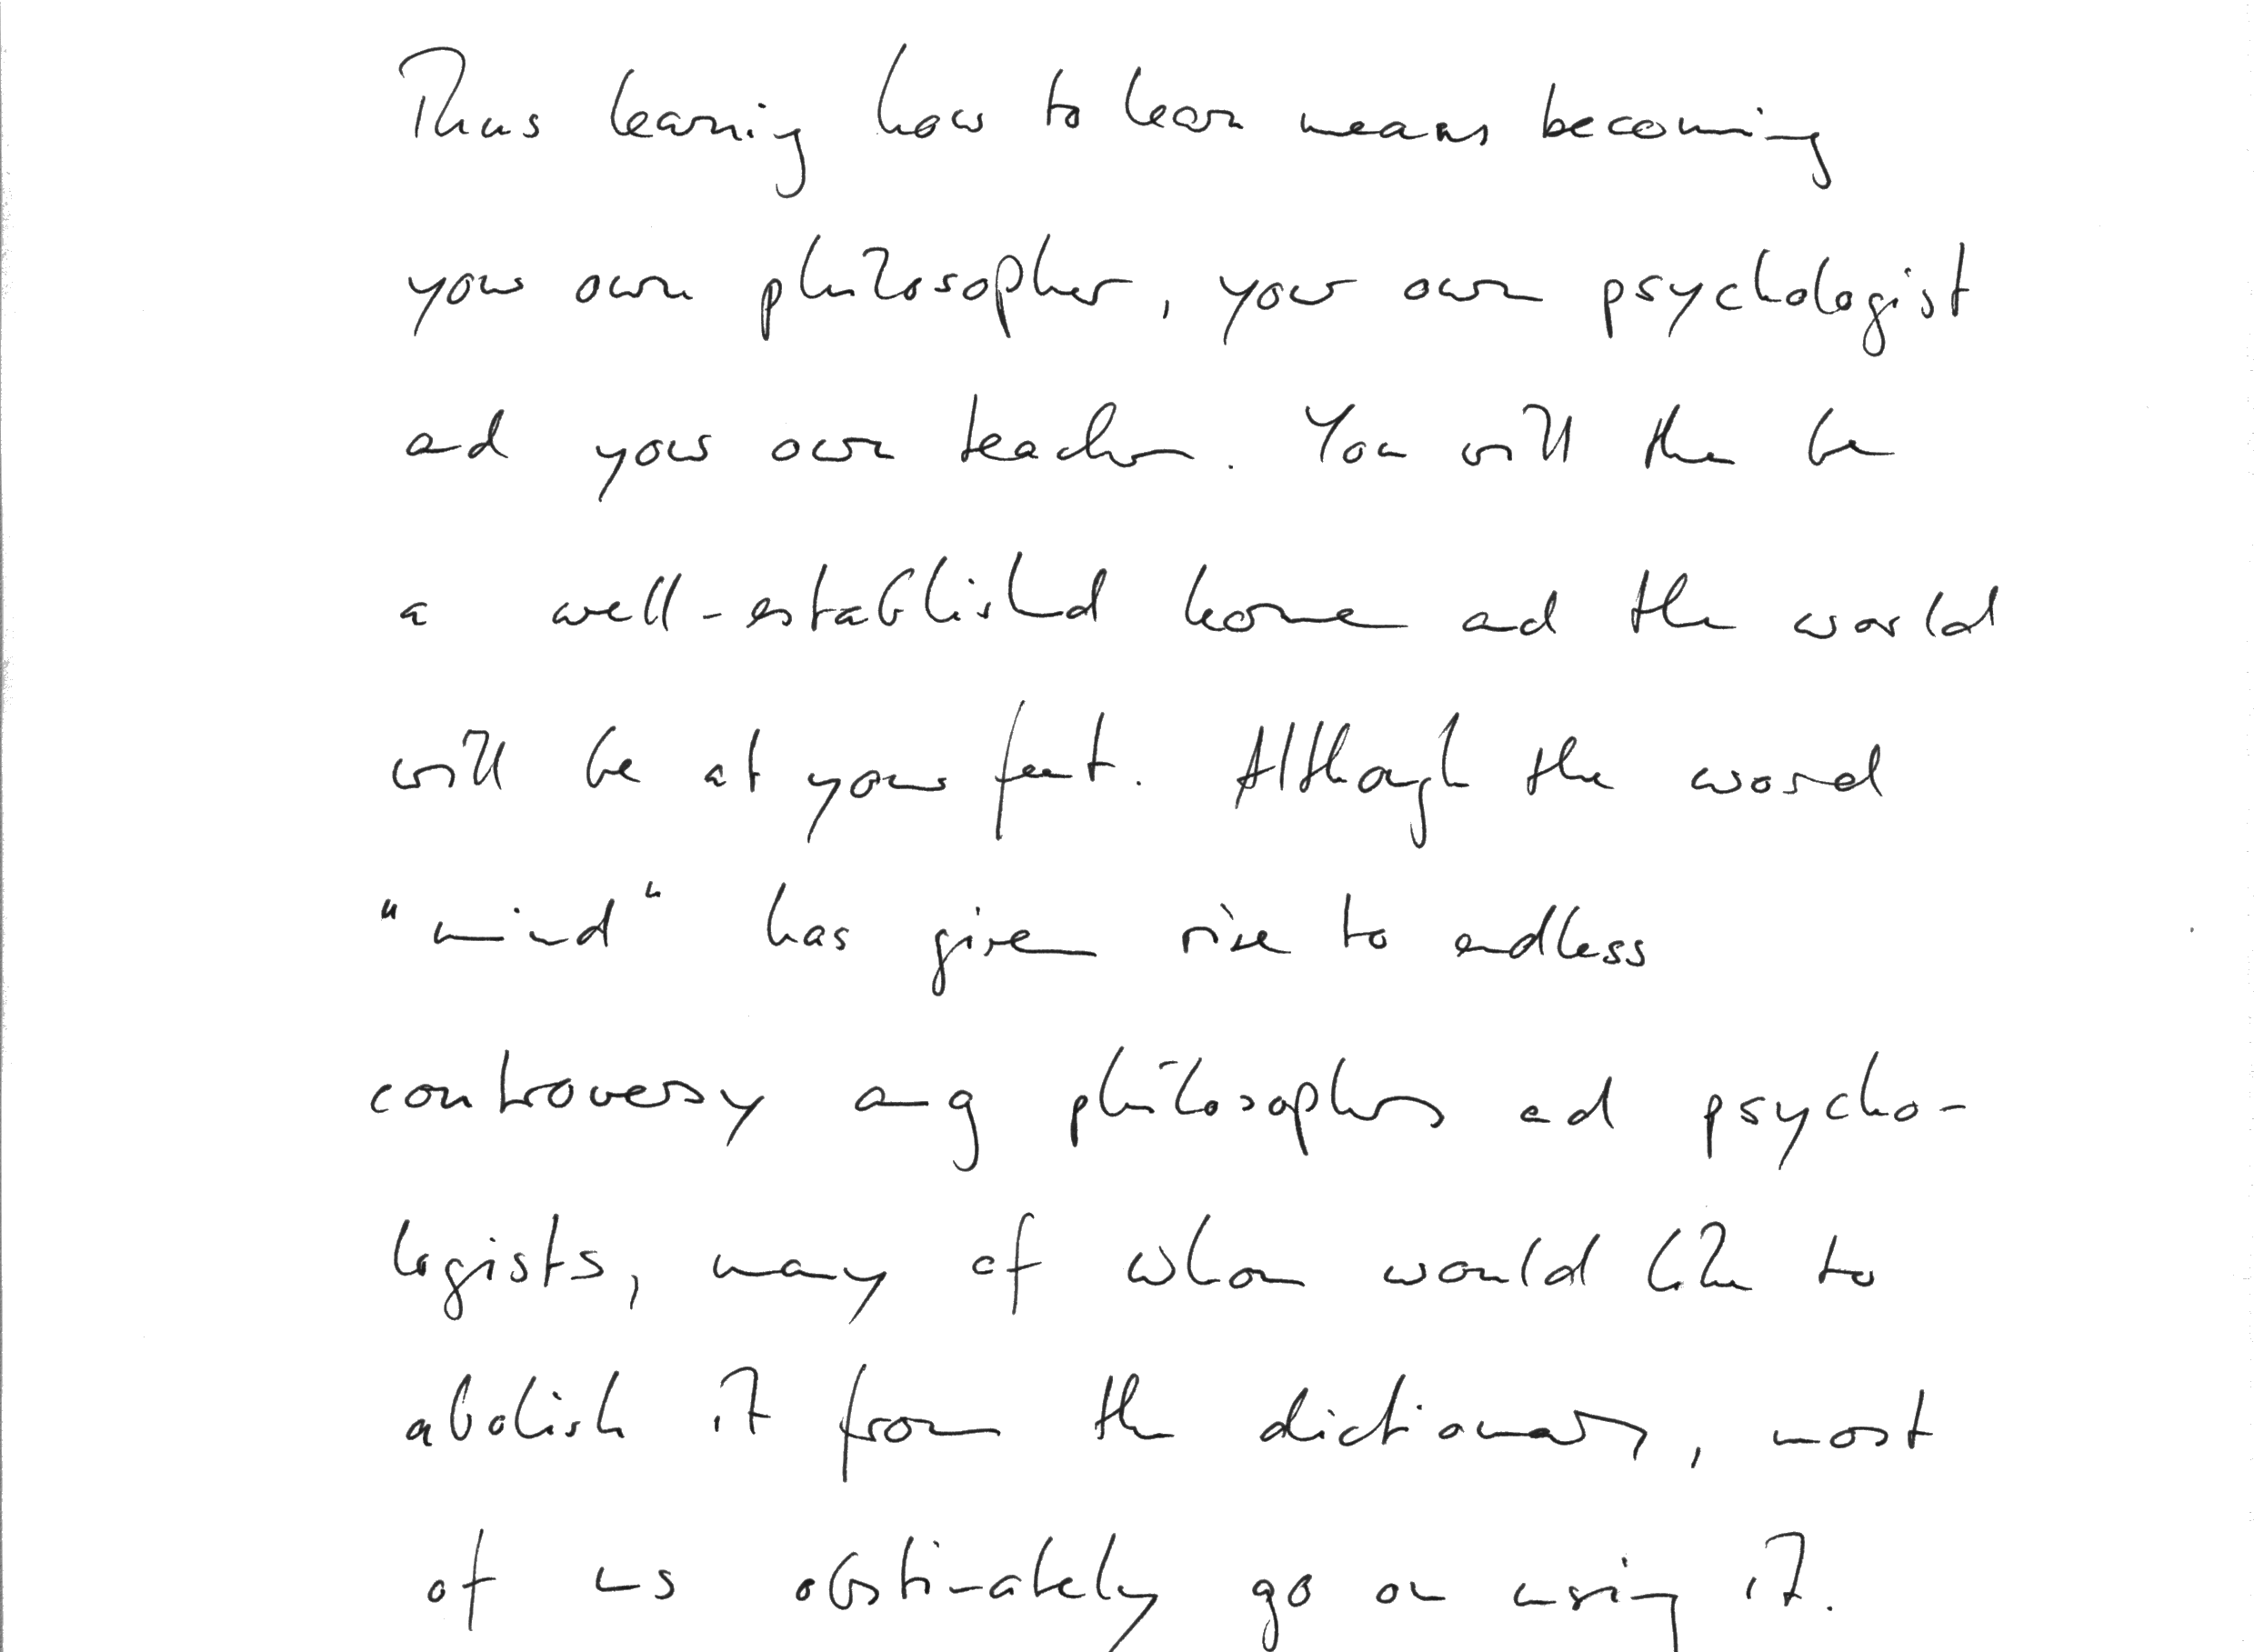 Thus learning how to learn means becoming
your own philosopher, your own psychologist
and your own teacher. You will then be
a well-established home and the world
will be at your feet. Although the word
"mind" has given rise to endless
controversy among philosophers and psycho-
logists, many of whom would like to
abolish it from the dictionary, most
of us obstinately go on using it.